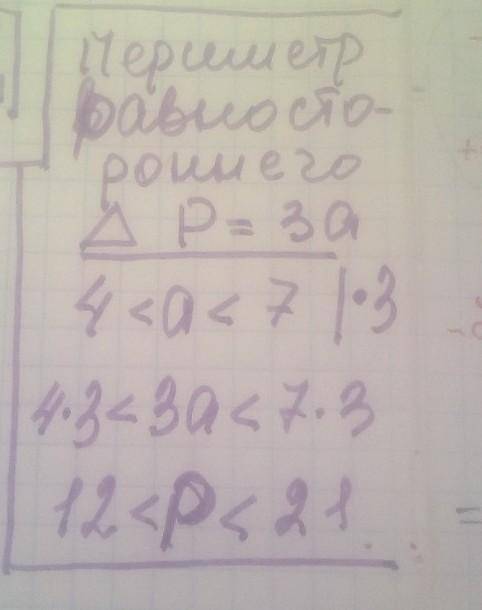 Периметр
равносто-
роннего
△ P = 3a
4 < a < 7 |·3
4·3 < 3a < 7·3
12 < P < 21